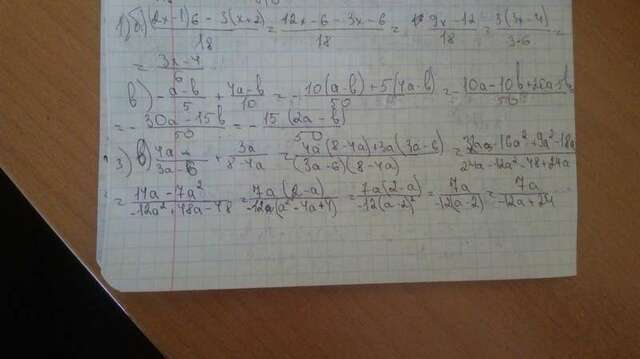 1) б) (2x-1)6 - 3(x+2) / 18 = 12x - 6 - 3x - 6 / 18 = 9x - 12 / 18 = 3(3x-4) / 3·6 =
= 3x-4 / 6
в) - a-b / 5 + 4a-b / 10 = - 10(a-b) + 5(4a-b) / 50 = - 10a-10b+20a-5b / 50
= - 30a-15b / 50 = - 15(2a-b) / 50
3) в) 4a / 3a-6 + 3a / 8-4a = 4a(8-4a)+3a(3a-6) / (3a-6)(8-4a) = 32a-16a²+9a²-18a / 24a-12a²-48+24a
= 14a-7a² / -12a²+48a-48 = 7a(2-a) / -12(a²-4a+4) = 7a(2-a) / -12(a-2)² = 7a / -12(a-2) = 7a / -12a+24